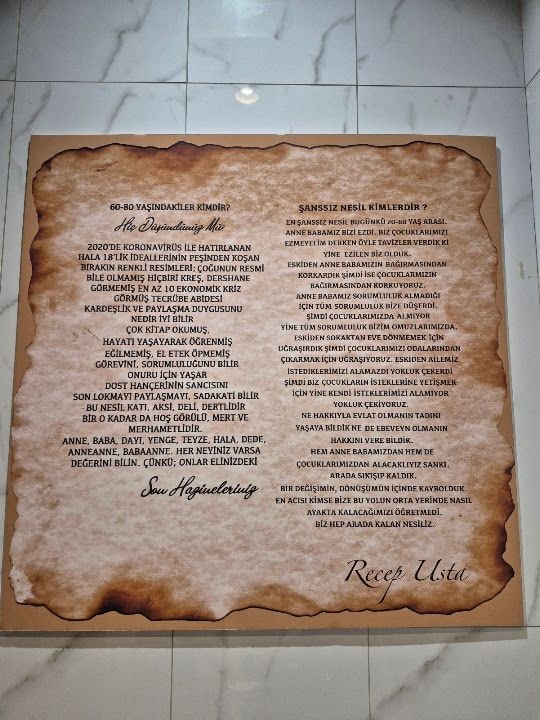 60-80 YAŞINDAKİLER KİMDİR?
Hiç Düşündünüz Mü
2020'DE KORONAVİRÜS İLE HATIRLANAN
HALA 18'LİK İDEALLERİNİN PEŞİNDEN KOŞAN
BIRAKIN RENKLİ RESİMLERİ; ÇOĞUNUN RESMİ
BİLE OLMAMIŞ HİÇBİRİ KREŞ, DERSHANE
GÖRMEMİŞ EN AZ 10 EKONOMİK KRİZ
GÖRMÜŞ TECRÜBE ABİDESİ
KARDEŞLİK VE PAYLAŞMA DUYGUSUNU
NEDİR İYİ BİLİR
ÇOK KİTAP OKUMUŞ,
HAYATI YAŞAYARAK ÖĞRENMİŞ
EĞİLMEMİŞ, EL ETEK ÖPMEMİŞ
GÖREVİNİ, SORUMLULUĞUNU BİLİR
ONURU İÇİN YAŞAR
DOST HANÇERİNİN SANCISINI
SON LOKMAYI PAYLAŞMAYI, SADAKATİ BİLİR
BU NESİL KATI, AKSİ, DELİ, DERTLİDİR
BİR O KADAR DA HOŞ GÖRÜLÜ, MERT VE
MERHAMETLİDİR.
ANNE, BABA, DAYI, YENGE, TEYZE, HALA, DEDE,
ANNEANNE, BABAANNE. HER NEYİNİZ VARSA
DEĞERİNİ BİLİN. ÇÜNKÜ; ONLAR ELİNİZDEKİ
Son Hazineleriniz
ŞANSSIZ NESİL KİMLERDİR ?
EN ŞANSSIZ NESİL BUGÜNKÜ 20-60 YAŞ ARASI.
ANNE BABAMIZ BİZİ EZDİ, BİZ ÇOCUKLARIMIZI
EZMEYELİM DERKEN ÖYLE TAVİZLER VERDİK Kİ
YİNE EZİLEN BİZ OLDUK.
ESKİDEN ANNE BABAMIZIN BAĞIRMASINDAN
KORKARDIK ŞİMDİ İSE ÇOCUKLARIMIZIN
BAĞIRMASINDAN KORKUYORUZ.
ANNE BABAMIZ SORUMLULUK ALMADIĞI
İÇİN TÜM SORUMLULUK BİZE DÜŞERDİ.
ŞİMDİ ÇOCUKLARIMIZDA ALMIYOR
YİNE TÜM SORUMLULUK BİZİM OMUZLARIMIZDA.
ESKİDEN SOKAKTAN EVE DÖNMEMEK İÇİN
UĞRAŞIRDIK ŞİMDİ ÇOCUKLARIMIZI ODALARINDAN
ÇIKARMAK İÇİN UĞRAŞIYORUZ. ESKİDEN AİLEMİZ
İSTEDİKLERİMİZİ ALAMAZDI YOKLUK ÇEKERDİ
ŞİMDİ BİZ ÇOCUKLARIN İSTEKLERİNE YETİŞMEK
İÇİN YİNE KENDİ İSTEKLERİMİZİ ALAMIYOR
YOKLUK ÇEKİYORUZ.
NE HAKKIYLA EVLAT OLMANIN TADINI
YAŞAYA BİLDİK NE DE EBEVEYN OLMANIN
HAKKINI VERE BİLDİK.
HEM ANNE BABAMIZDAN HEM DE
ÇOCUKLARIMIZDAN ALACAKLIYIZ SANKİ.
ARADA SIKIŞIP KALDIK.
BİR DEĞİŞİMİN, DÖNÜŞÜMÜN İÇİNDE KAYBOLDUK.
EN ACISI KİMSE BİZE BU YOLUN ORTA YERİNDE NASIL
AYAKTA KALACAĞIMIZI ÖĞRETMEDİ.
BİZ HEP ARADA KALAN NESİLİZ.
Recep Usta